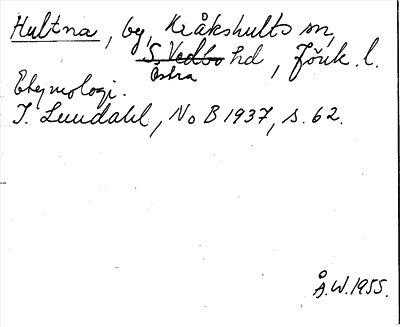 Hultna, by, Kråkshults sn,
S. Vedbo hd, Jönk. l.
Östra
Etymologi.
I. Lundahl, NoB 1937, s. 62.
Å.W. 1955.